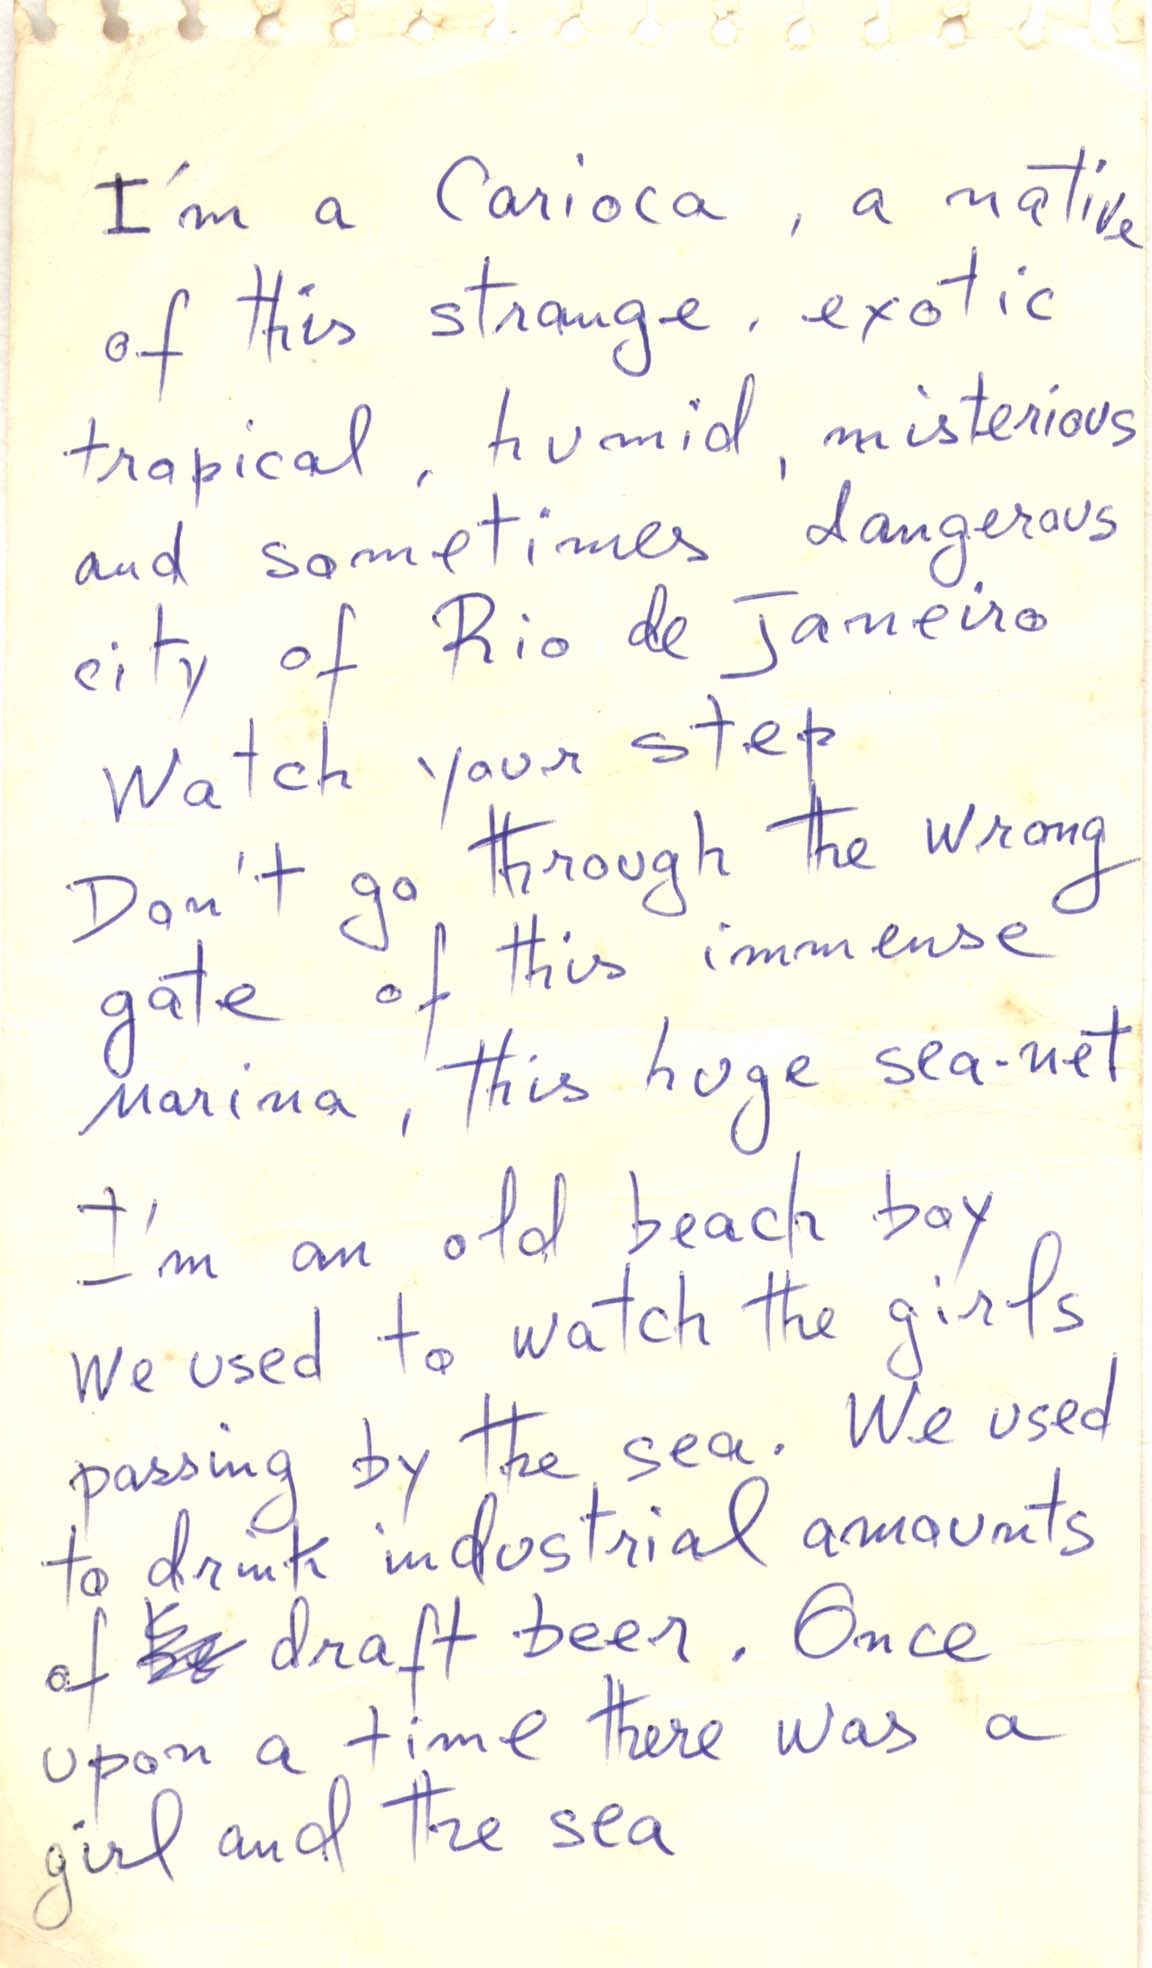 I'm a Carioca, a native
of this strange, exotic
tropical, humid, misterious
and sometimes dangerous
city of Rio de Janeiro
Watch your step
Don't go through the wrong
gate of this immense
Marina, this huge sea-net
I'm an old beach boy
We used to watch the girls
passing by the sea. We used
to drink industrial amounts
of draft beer. Once
upon a time there was a
girl and the sea